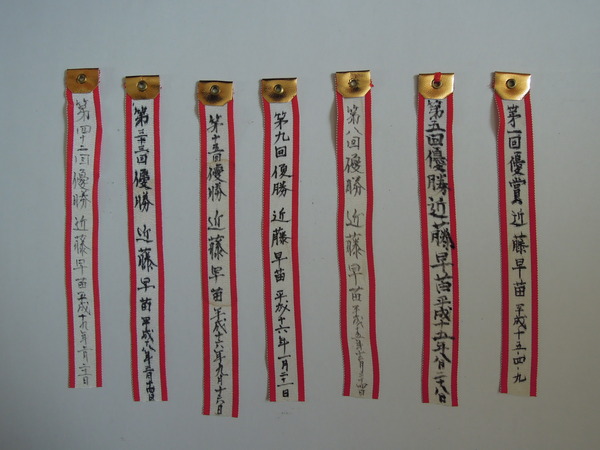 第一回優賞 近藤早苗 平成十五・四・九
第五回優勝 近藤早苗 平成十五年八月二十八日
第八回優勝 近藤早苗 平成十五年
第九回優勝 近藤早苗 平成十六年一月二十一日
第十五回優勝 近藤早苗 平成十六年九月十六日
第三十三回優勝 近藤早苗 平成十八年
第四十二回優勝 近藤早苗 平成十九年